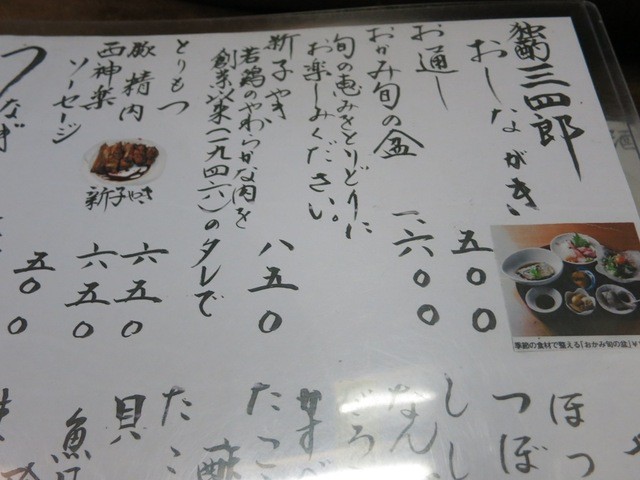 独酌三四郎
おしながき
お通し 五〇〇
おかみ旬の盆 一、六〇〇
旬の恵みをとりどりに
お楽しみください。
新子やき 八五〇
若鶏のやわらかな肉を
創業以来(一九四六)のタレで
とりもつ 六五〇
豚精肉 六五〇
西神楽
ソーセージ 五〇〇
新子やき
季節の食材で整える「おかみ旬の盆」￥1
つなぎ
ほっ
つぼ
しし
なん
ごろ
かすべ
たこ
酢
たこ
貝
魚